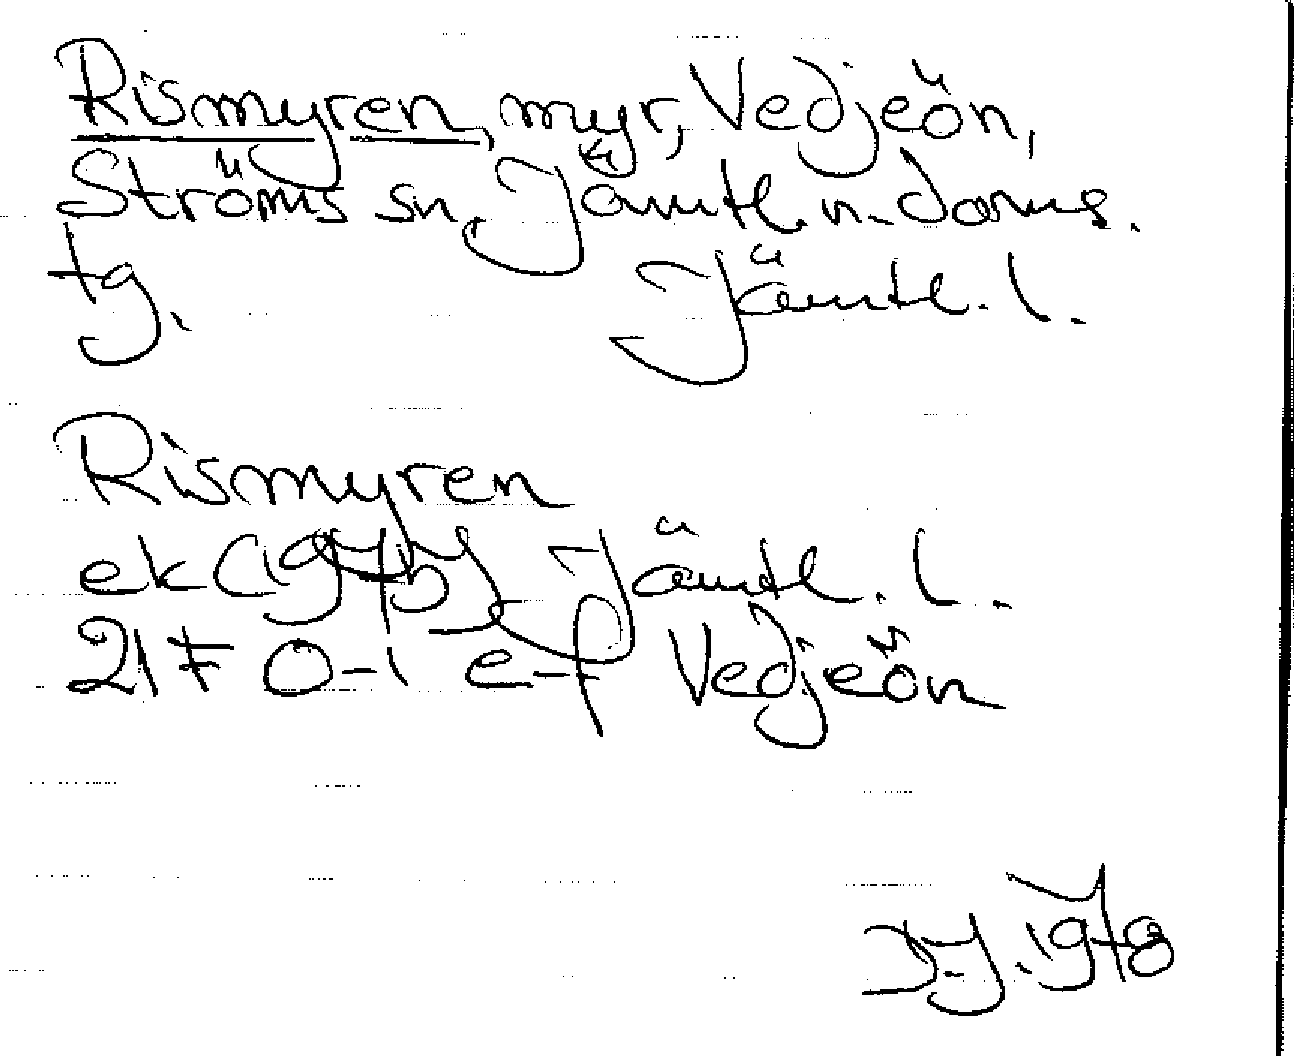 Rismyren, myr, Vedjeön,
Ströms sn, Jämtl. n. doms.
tg. Jämtl. l.
Rismyren
ek (1975) Jämtl. l.
21 F 0-1 e-f Vedjeön
1978